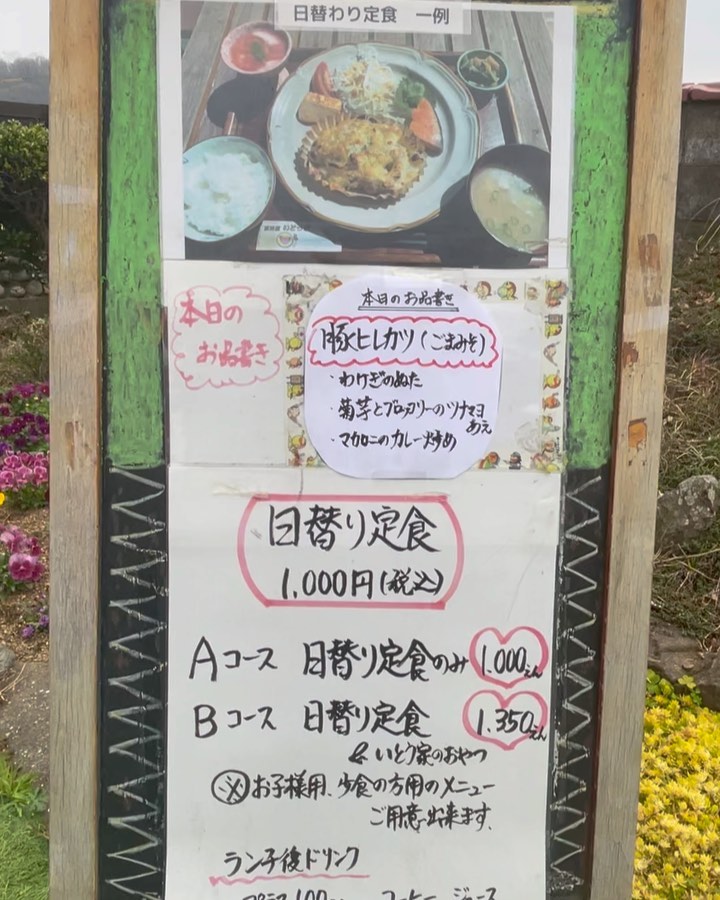 日替わり定食 一例
本日の
お品書き
本日のお品書き
豚ヒレカツ(ごまみそ)
・わけぎのぬた
・菊芋とブロッコリーのツナマヨ
あえ
・マカロニのカレー炒め
日替り定食
1,000円(税込)
Aコース 日替り定食のみ 1.000えん
Bコース 日替り定食 1.350えん
& いとう家のおやつ
※お子様用、少食の方用のメニュー
ご用意出来ます、
ランチ後ドリンク
プラス100 コーヒー ジュース